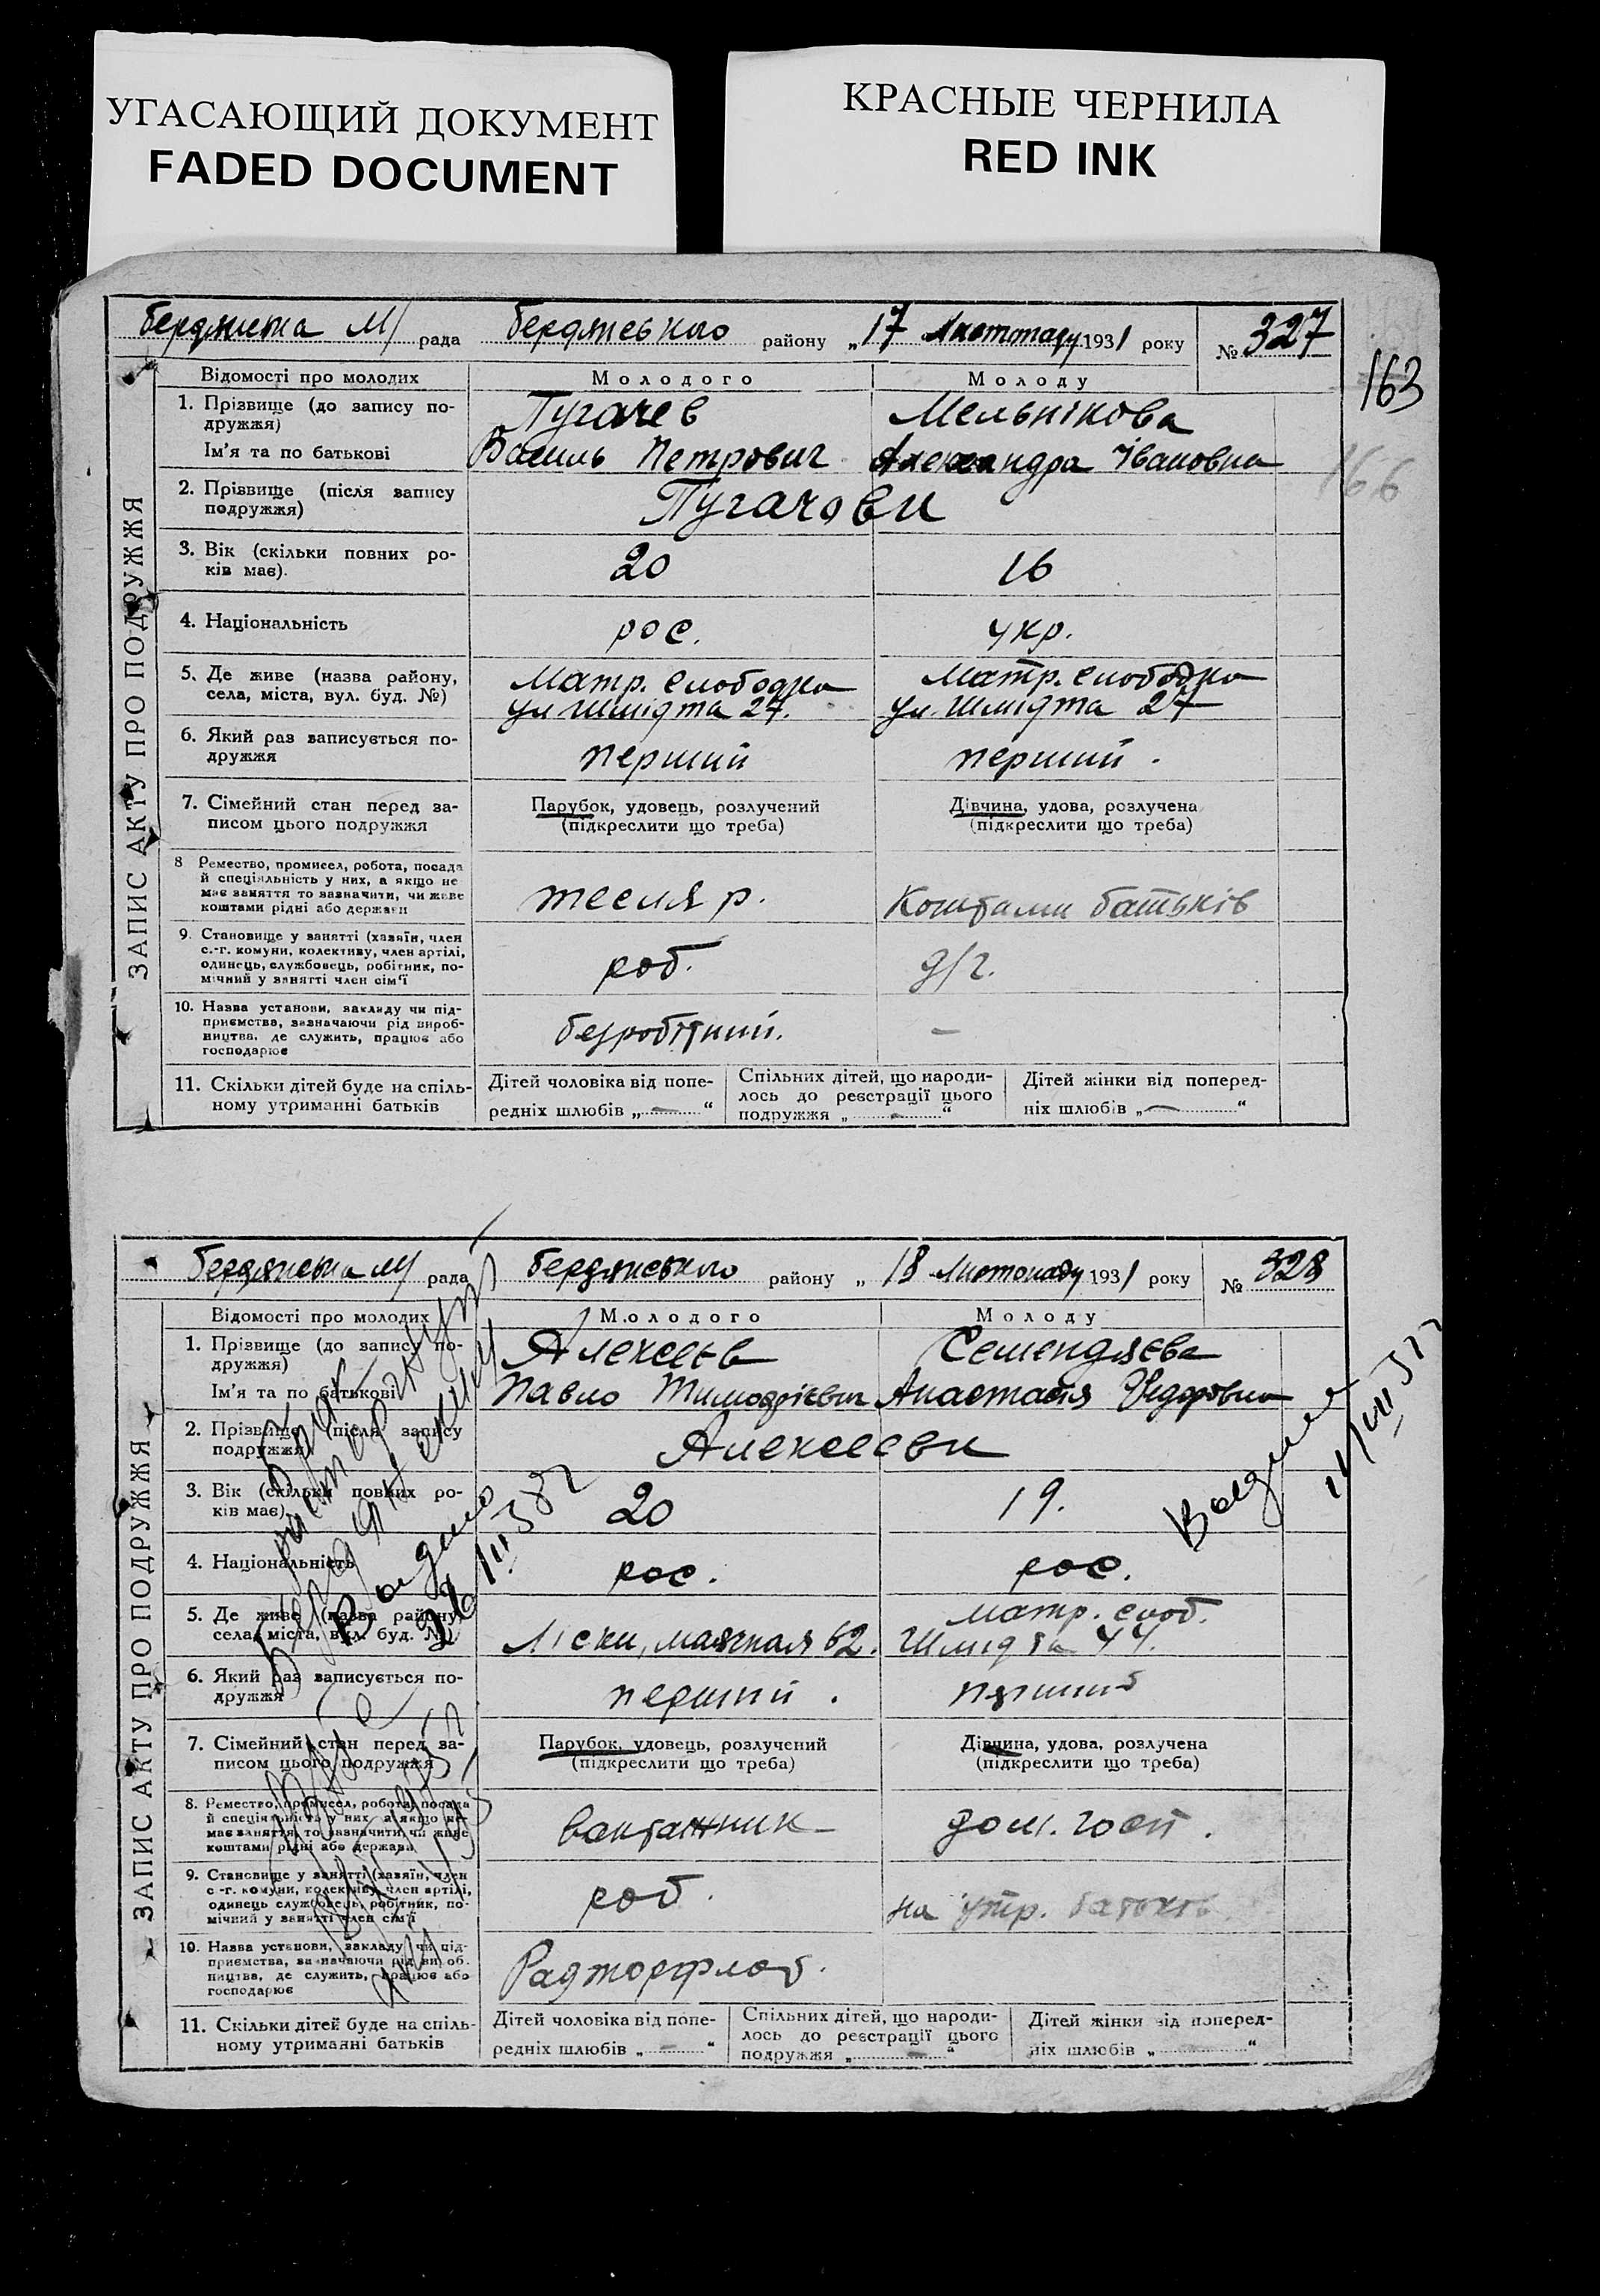 УГАСАЮЩИЙ ДОКУМЕНТ
FADED DOCUMENT
КРАСНЫЕ ЧЕРНИЛА
RED INK
163
166
ЗАПИС АКТУ ПРО ПОДРУЖЖЯ
Бердянська М/ рада Бердянського району „17 Листопаду 1931 року № 327
Відомості про молодих Молодого Молоду
1. Прізвище (до запису подружжя) Пугачев Мельнікова
Ім'я та по батькові Василь Петрович Александра Івановна
2. Прізвище (після запису подружжя) Пугачови
3. Вік (скільки повних років має). 20 16
4. Національність рос. укр.
5. Де живе (назва району, села, міста, вул. буд. №) Матр. слободка ул Шмідта 27. Матр. слободка ул. Шмідта 27
6. Який раз записується подружжя перший перший.
7. Сімейний стан перед записом цього подружжя Парубок, удовець, розлучений (підкреслити що треба) Дівчина, удова, розлучена (підкреслити що треба)
8 Ремество, промисел, робота, посада й спеціяльність у них, а якщо не має заняття то зазначити, чи живе коштами рідні або держави тесля р. Коштами батьків
9. Становище у занятті (хазяїн, член с.-г. комуни, колективу, член артілі, одинець, службовець, робітник, помічний у занятті член сім'ї роб. д/г.
10. Назва установи, закладу чи підприємства, зазначаючи рід виробництва, де служить, працює або господарює безробітний. –
11. Скільки дітей буде на спільному утриманні батьків Дітей чоловіка від попередніх шлюбів „ — “ Спільних дітей, що народилось до реєстрації цього подружжя „ - “ Дітей жінки від попередніх шлюбів „ — “
ЗАПИС АКТУ ПРО ПОДРУЖЖЯ
Бердянська М/ рада Бердянського району „ 18 Листопаду 1931 року № 328
Відомості про молодих Молодого Молоду
1. Прізвище (до запису подружжя) Алексеєв Семендяєва
Ім'я та по батькові Павло Тимофієвич Анастасія Федоровна
2. Прізвище (після запису подружжя) Алексеєви
3. Вік (скільки повних років має) 20 19.
4. Національність рос. рос.
5. Де живе (назва району, села, міста, вул. буд. №) Ліски, маячная 62. матр. слоб. Шмідта 44.
6. Який раз записується подружжя перший. перший
7. Сімейний стан перед записом цього подружжя Парубок, удовець, розлучений (підкреслити що треба) Дівчина, удова, розлучена (підкреслити що треба)
8. Ремество, промисел, робота, посада й спеціяльність у них, а якщо не має заняття то зазначити, чи живе коштами рідні або держави вантажник дом. госп.
9. Становище у занятті (хазяїн, член с-г. комуни, колективу, член артілі, одинець службовець, робітник, помічний у занятті член сім'ї роб. на утр. батьків
10. Назва установи, закладу чи підприємства, зазначаючи рід виробництва, де служить, працює або господарює Радторгфлот.
11. Скільки дітей буде на спільному утриманні батьків Дітей чоловіка від попередніх шлюбів „ - “ Спільних дітей, що народилось до реєстрації цього подружжя „ - “ Дітей жінки від попередніх шлюбів „ “